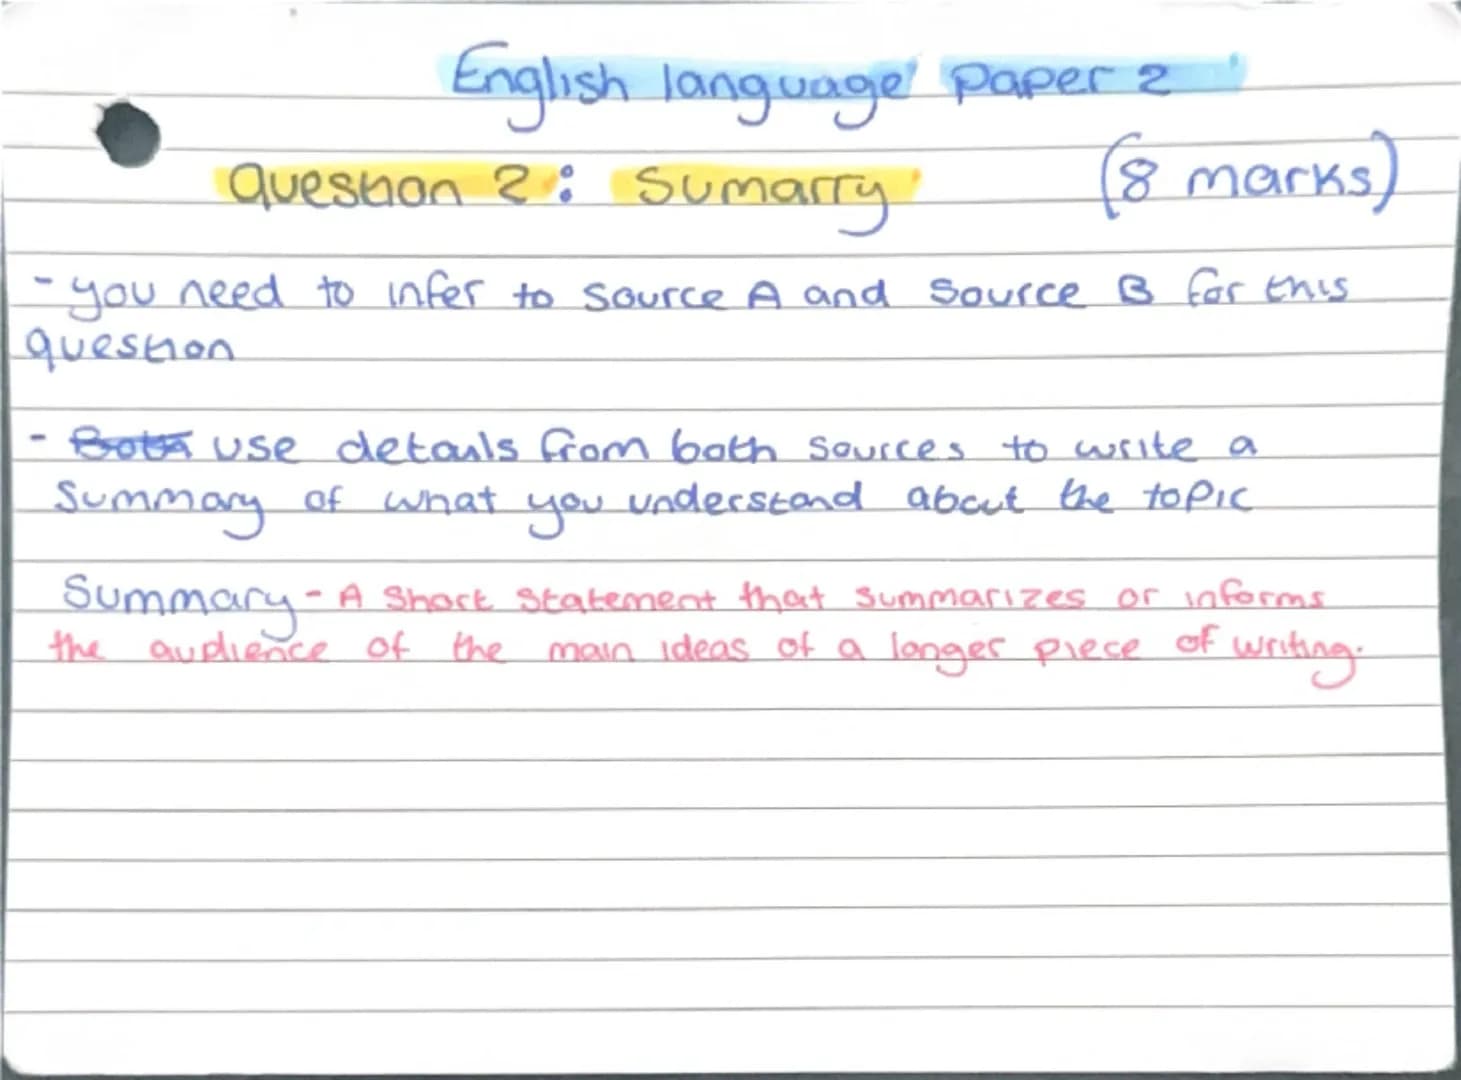 English language paper 2
Question 2: Sumarry (8 marks)
- you need to infer to source A and source B for this
question
- Both use details from both sources to write a
Summary of what you understand about the topic
Summary - A Short Statement that summarizes or informs
the audience of the main ideas of a longer piece of writing.